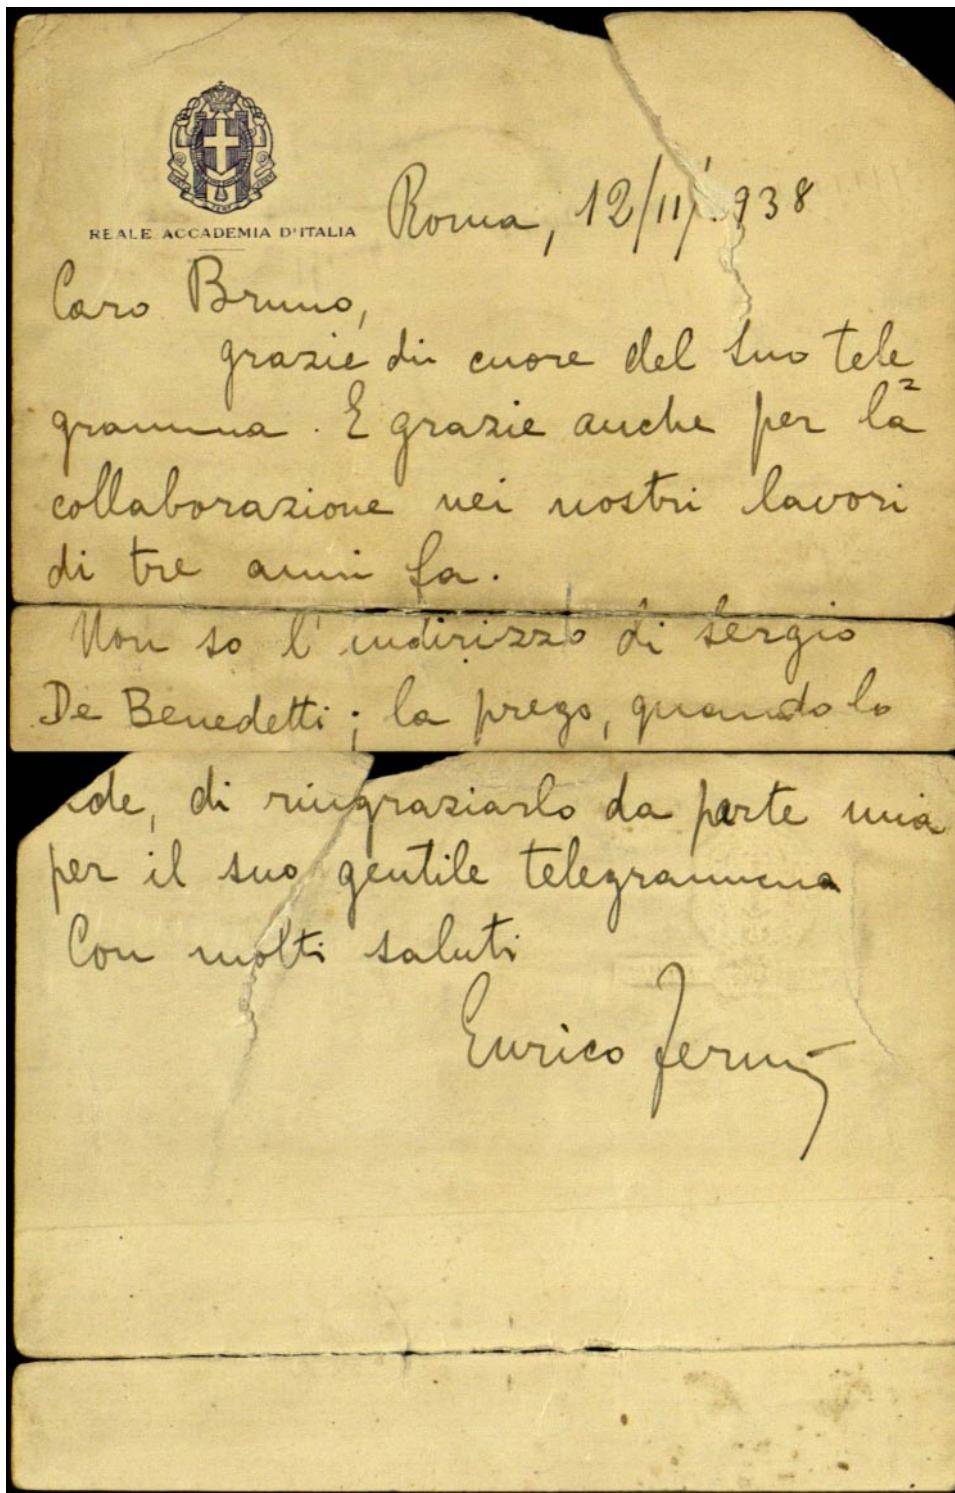 REALE ACCADEMIA D'ITALIA
Roma, 12/11/1938
Caro Bruno,
grazie di cuore del suo tele
gramma. E grazie anche per la
collaborazione nei nostri lavori
di tre anni fa.
Non so l'indirizzo di Sergio
De Benedetti; la prego, quando lo
di ringraziarlo da parte mia
per il suo gentile telegramma
Con molti saluti
Enrico Fermi